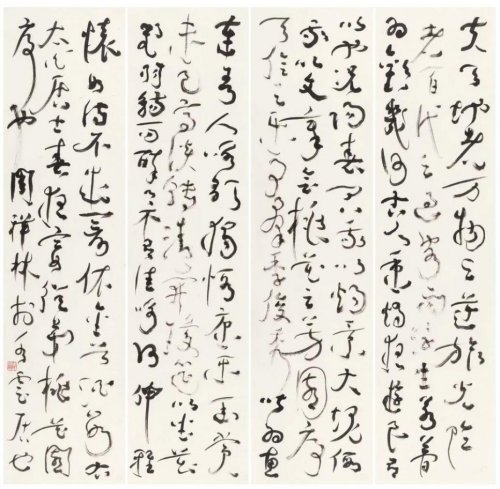 夫天地者万物之逆旅光阴
者百代之过客而浮生若梦
为欢几何古人秉烛夜游良有
以也况阳春召我以烟景大块假
我以文章会桃花之芳园序
天伦之乐事群季俊秀皆为惠
连吾人咏歌独惭康乐幽赏
未已高谈转清开琼筵以坐花
飞羽觞而醉月不有佳咏何伸雅
怀如诗不成罚依金谷酒数右
太白居士春夜宴从弟桃花园
序也周祥林于云居也